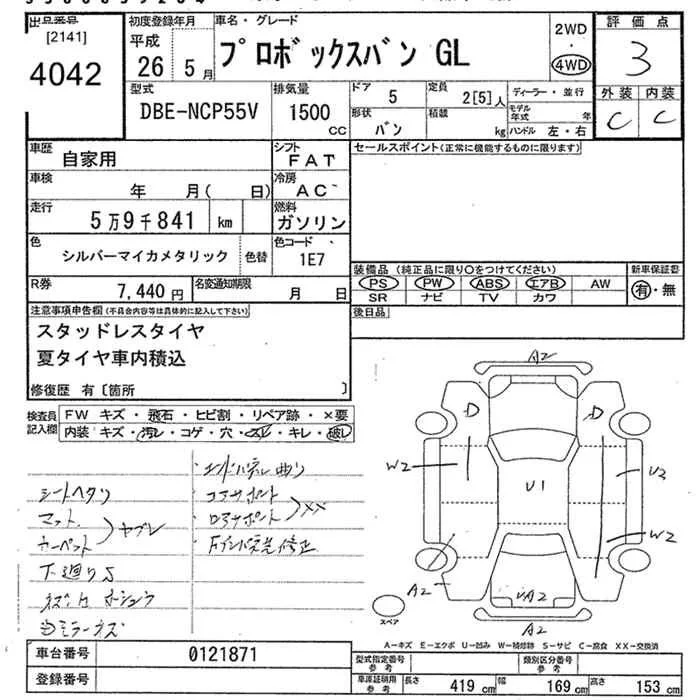 出品番号
[2141]
4042
初度登録年月
平成
26 5 月
車名・グレード
プロボックスバン GL
2WD
・
4WD
評価点
3
外装 内装
C C
型式
DBE-NCP55V
排気量
1500
CC
ドア
5
定員
2[5]人
ディーラー・並行
形状
バン
積載
kg
モデル年式 年
ハンドル 左・右
車歴
自家用
シフト
FAT
車検
年 月( 日)
冷房
AC
走行
5万9千841 km
燃料
ガソリン
色
シルバーマイカメタリック
色替
色コード
1E7
R券
7,440 円
名変通知期限
月 日
セールスポイント(正常に機能するものに限ります)
装備品 (純正品に限り○をつけてください)
新車保証書
PS PW ABS エアB AW
SR ナビ TV カワ
有・無
後日品
注意事項申告欄(不具合内容等は具体的に記入して下さい)
スタッドレスタイヤ
夏タイヤ車内積込
修復歴 有〔箇所 〕
検査員
記入欄
FW キズ・飛石・ヒビ割・リペア跡・×要
内装 キズ・汚レ・コゲ・穴・スレ・キレ・破レ
シートヘタリ
マット
カーペット
ヤブレ
下廻りS
・エンドパネル曲り
・コアサポート
・ロアサポート
XX
A2
D D
W2
U1
U2
W2
A2
A2
スペア
A2
A-キズ E-エクボ U-凹み W-補修跡 S-サビ C-腐食 XX-交換済
車台番号
0121871
登録番号
型式指定番号
参考
類別区分番号
参考
車庫証明用
参考
長さ 419 cm 幅 169 cm 高さ 153 cm